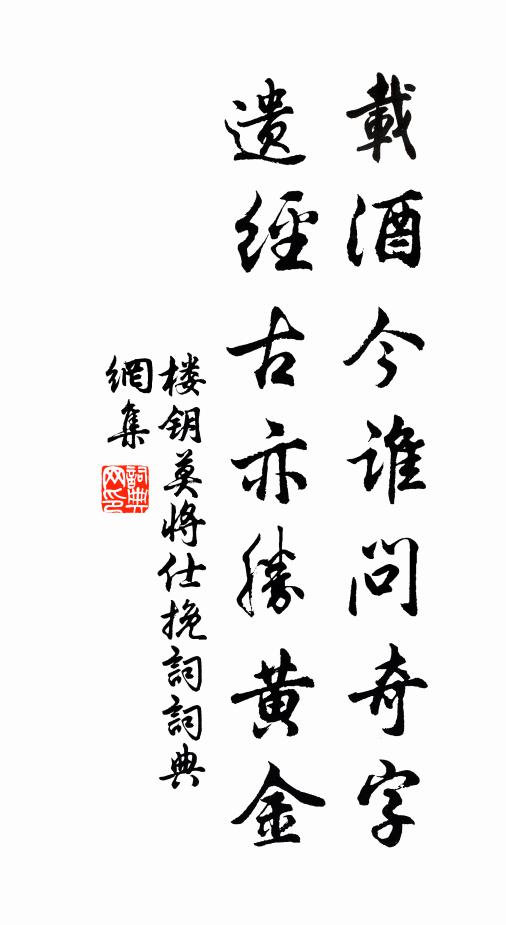 載酒今誰問奇字
遺經古亦勝黄金
楼钥莫將仕挽詞詞典
網集
詞典
网印